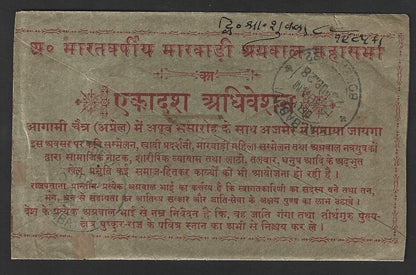 द्वि० श्रा० शुक्ला
अ० भारतवर्षीय मारवाड़ी अग्रवाल महासभा
का
एकादश अधिवेशन
आगामी चैत्र (अप्रेल) में अपूर्व समारोह के साथ अजमेर में मनाया जायगा
इस अवसर पर कवि सम्मेलन, खादी प्रदर्शनी, मारवाड़ी महिला सम्मेलन तथा अग्रवाल नवयुवकों
द्वारा सामाजिक नाटक, शारीरिक व्यायाम तथा लाठी, तलवार, धनुष आदि के अद्भुत
खेल प्रभृति कई समाज-हितकर कार्य्यों की भी आयोजना हो रही है।
राजपूताना प्रान्तीय प्रत्येक अग्रवाल भाई का कर्तव्य है कि स्वागतकारिणी का सदस्य बने तथा तन,
मन, धन से सहायता कर आतिथ्य सत्कार और ज्ञाति-सेवा के अक्षय पुण्य का लाभ उठावे।
देश के प्रत्येक अग्रवाल भाई से नम्र निवेदन है कि, वह जाति गंगा तथा तीर्थगुरु पुष्य-
क्षेत्र पुष्कर-राज के पवित्र स्नान का अभी से निश्चय कर ले।